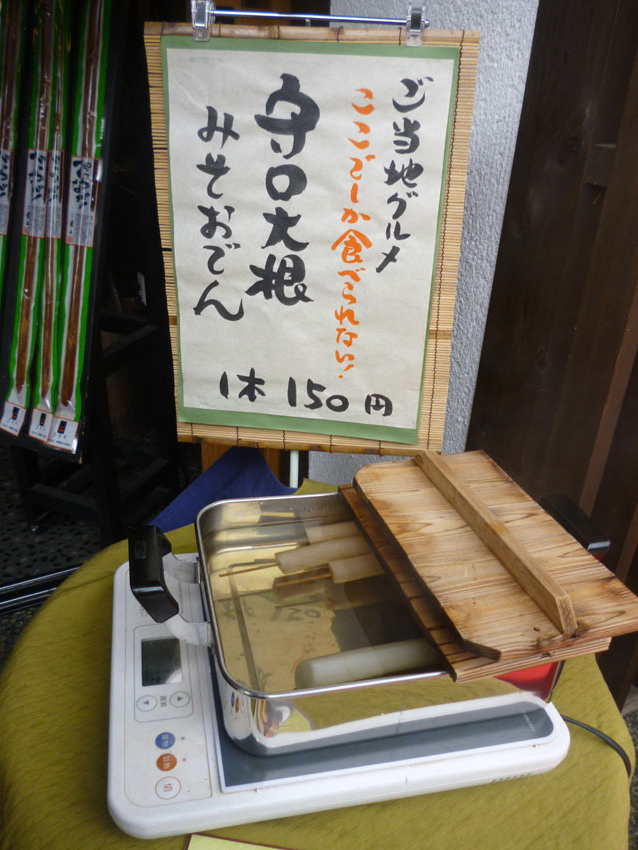 ご当地グルメ
ここでしか食べられない!
守口大根
みそおでん
1本 150円
切